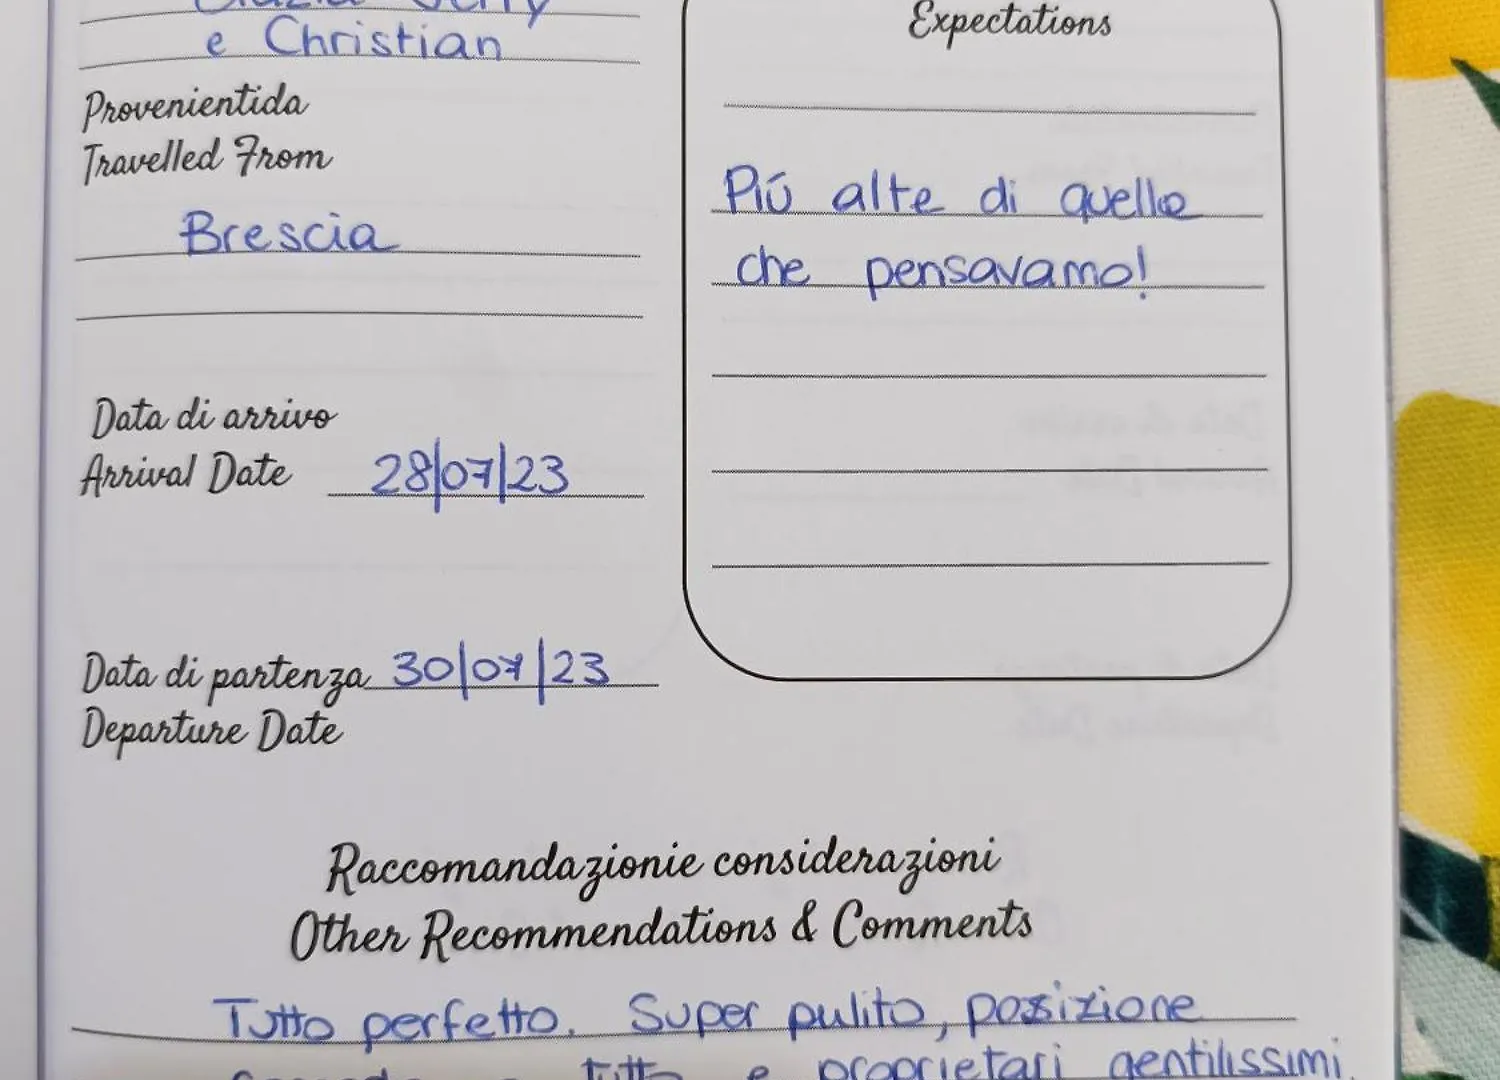 e Christian
Provenientida
Travelled From
Brescia
Data di arrivo
Arrival Date 28/07/23
Data di partenza 30/07/23
Departure Date
Expectations
Più alte di quelle
che pensavamo!
Raccomandazionie considerazioni
Other Recommendations & Comments
Tutto perfetto. Super pulito, posizione
tutto e proprietari gentilissimi